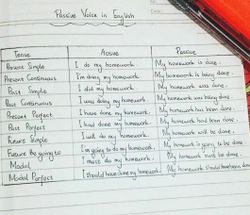 Passive Voice in English
Tense Active Passive
Present Simple I do my homework. My homework is done.
Present Continuous I'm doing my homework. My homework is being done.
Past Simple I did my homework. My homework was done.
Past Continuous I was doing my homework. My homework was being done
Present Perfect I have done my homework. My homework has been done.
Past Perfect I had done my homework. My homework had been done.
Future Simple I will do my homework. My homework will be done.
Future Be going to I'm going to do my homework. My homework is going to be done.
Modal I must do my homework. My homework must be done.
Modal Perfect I should have done my homework. My homework should have been done.